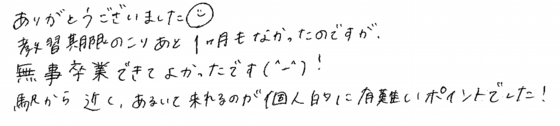 ありがとうございました☺
教習期限のこりあと1ヶ月もなかったのですが、
無事卒業できてよかったです(^-^)!
駅から近く、あるいて来れるのが個人的に有難いポイントでした!